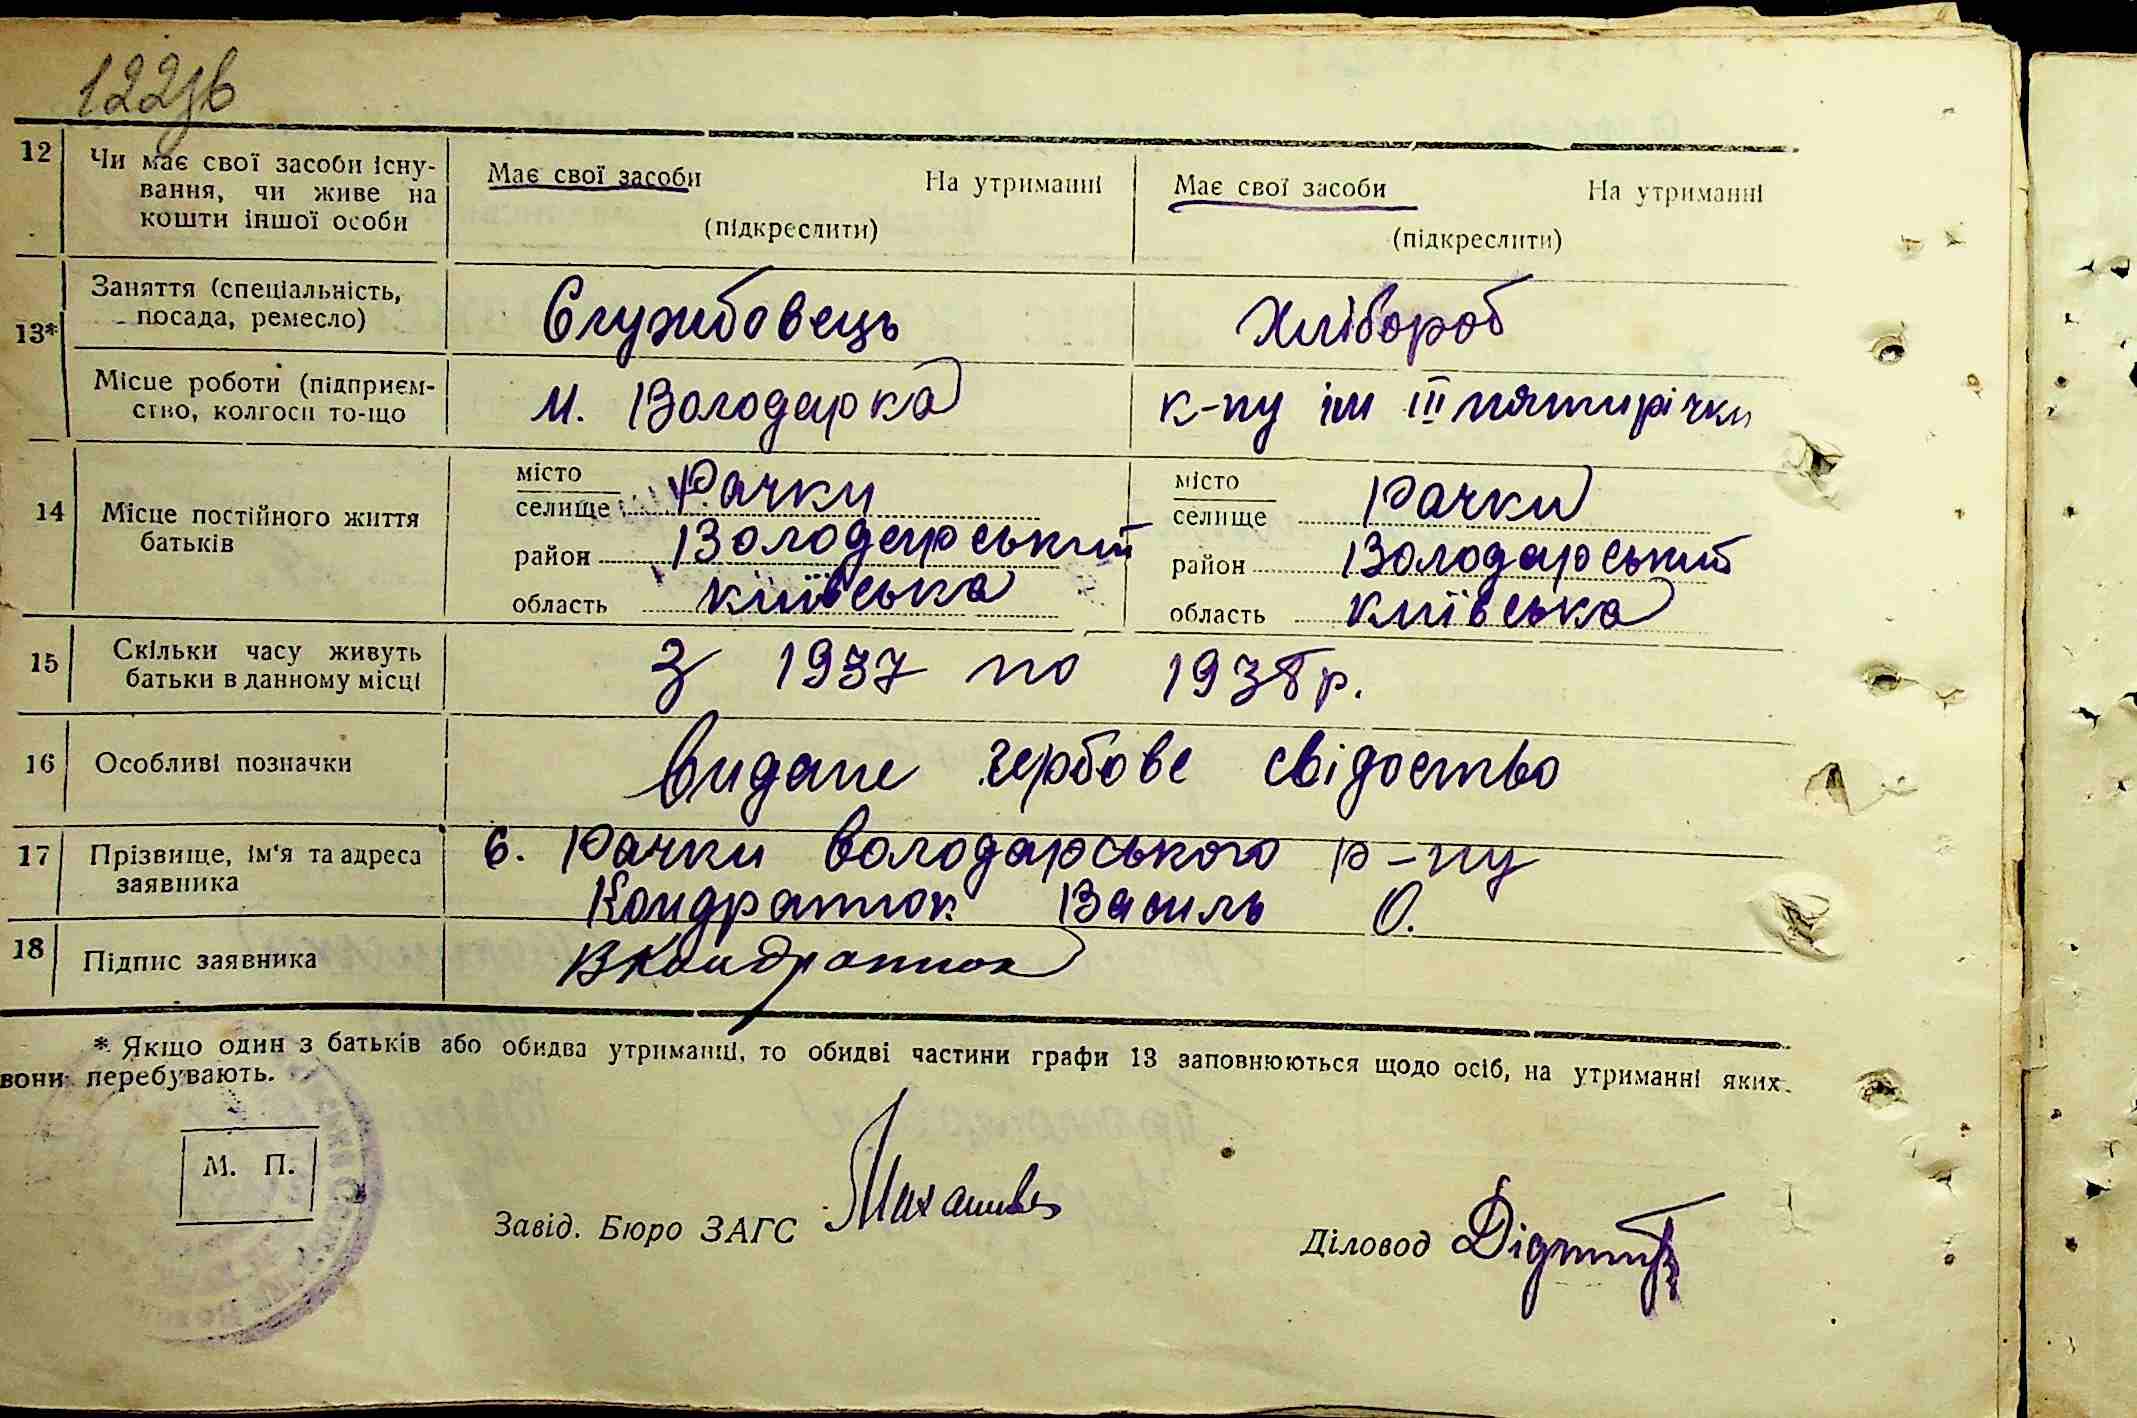 122зв
12 Чи має свої засоби існу-
вання, чи живе на
кошти іншої особи
Має свої засоби На утриманні
(підкреслити)
Має свої засоби На утриманні
(підкреслити)
13*
Заняття (спеціальність,
посада, ремесло)
Службовець
Хлібороб
Місце роботи (підприєм-
ство, колгосп то-що
М. Володарка
к-пу ім III пятирічки
14 Місце постійного життя
батьків
місто
селище Рачки
район Володарський
область київська
місто
селище Рачки
район Володарський
область київська
15 Скільки часу живуть
батьки в данному місці
З 1937 по 1938 р.
16 Особливі позначки
видане гербове свідоство
17 Прізвище, ім'я та адреса
заявника
с. Рачки володарського р-ну
Кондратюк Василь О.
18 Підпис заявника
ВКондратюк
* Якщо один з батьків або обидва утриманці, то обидві частини графи 13 заповнюються щодо осіб, на утриманні яких
вони перебувають.
М. П.
Завід. Бюро ЗАГС
Діловод